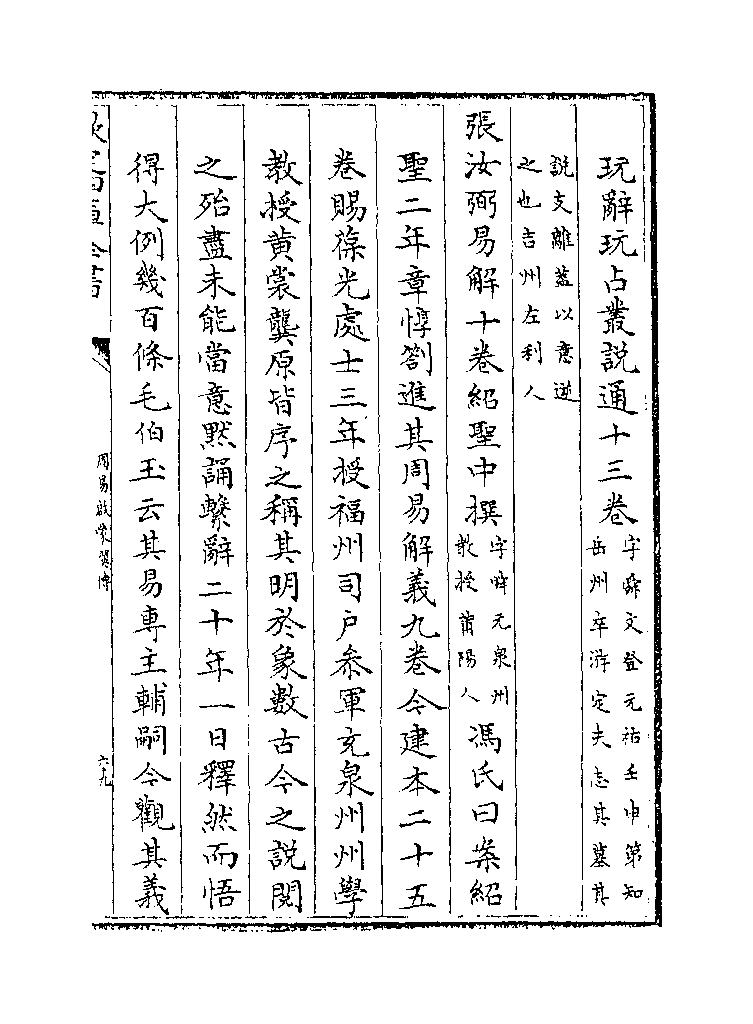 玩辭玩占叢說通十三卷字舜文登元祐壬申第知岳州卒游定夫志其墓其
說支離葢以意逆之也吉州左利人
張汝弼易解十卷紹聖中撰字舜元泉州教授莆陽人馮氏曰案紹
聖二年章惇劄進其周易解義九卷今建本二十五
卷賜葆光處士三年授福州司户叅軍充泉州州學
教授黄裳龔原皆序之稱其明於象數古今之說閱
之殆盡未能當意默誦繫辭二十年一日釋然而悟
得大例幾百條毛伯玉云其易專主輔嗣今觀其義
欽定四庫全書
周易啟蒙翼傳
六十九